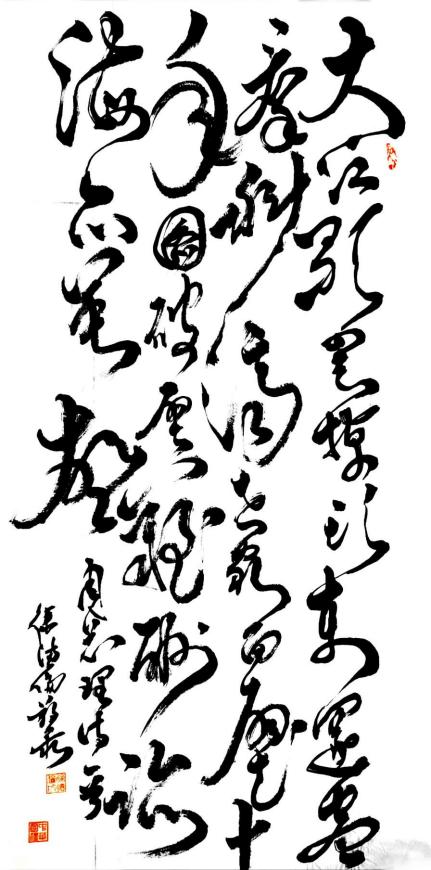 大江歌罢掉头东邃密
群科济世穷面壁十
年图破壁难酬蹈
海亦英雄
周总理诗一首